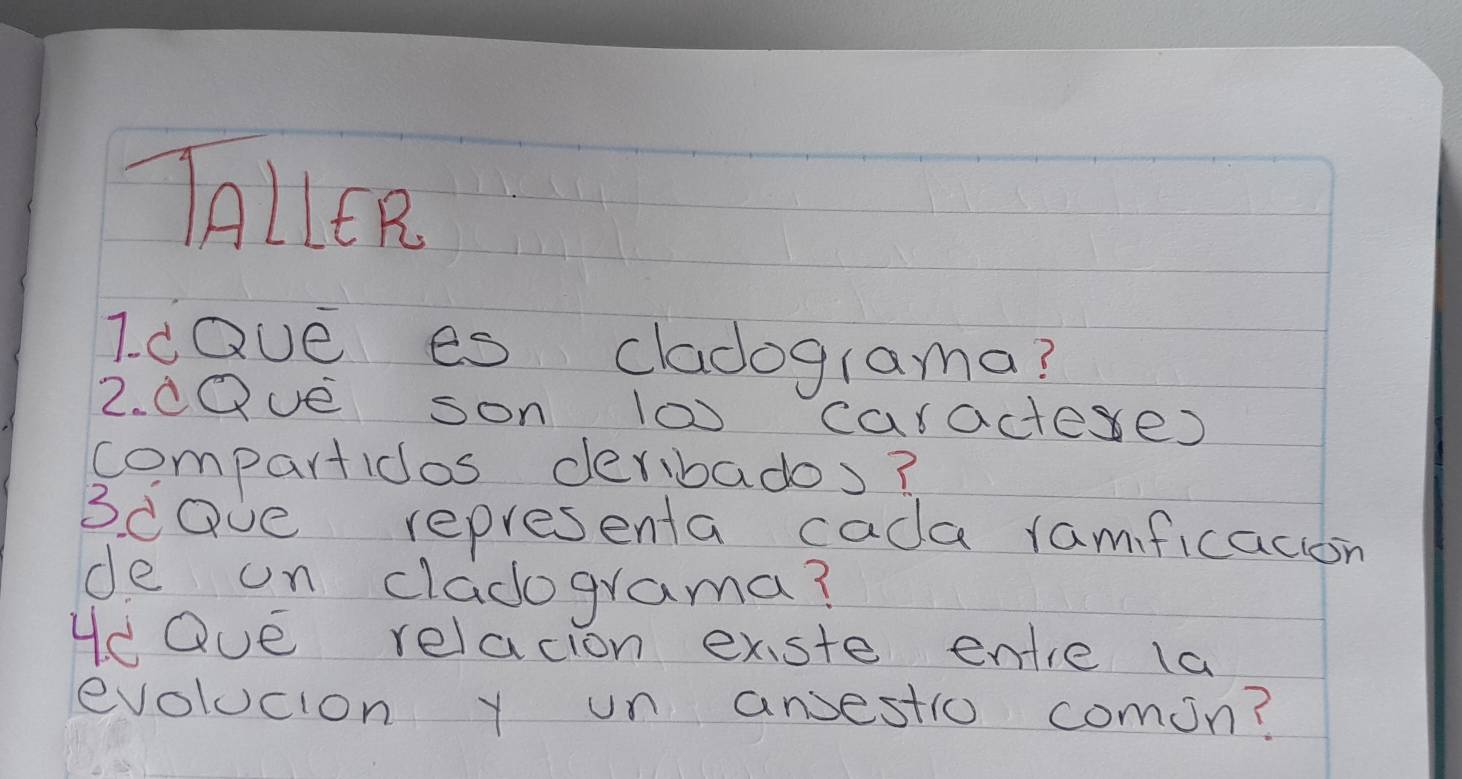 TALLER
1.¿Qué es cladograma?
2.¿Qué son los caracteres
compartidos deribados?
3.¿Que representa cada ramificación
de un cladograma?
4¿Qué relación existe entre la
evolucion y un ansestro común?